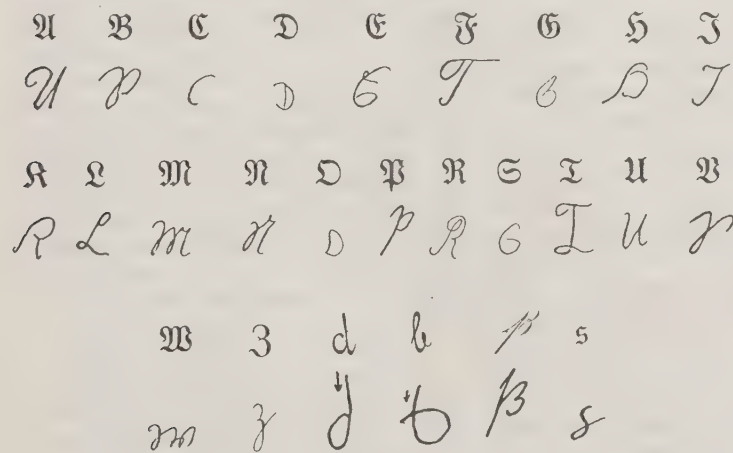 𝔄 𝔅 ℭ 𝔇 𝔈 𝔉 𝔊 ℌ 𝔍
A B C D E F G H J
𝔎 𝔏 𝔐 𝔑 𝔒 𝔓 ℜ 𝔖 𝔗 𝔘 𝔙
K L M N O P R S T U V
𝔚 ℨ d b ß s
W Z d b ß s